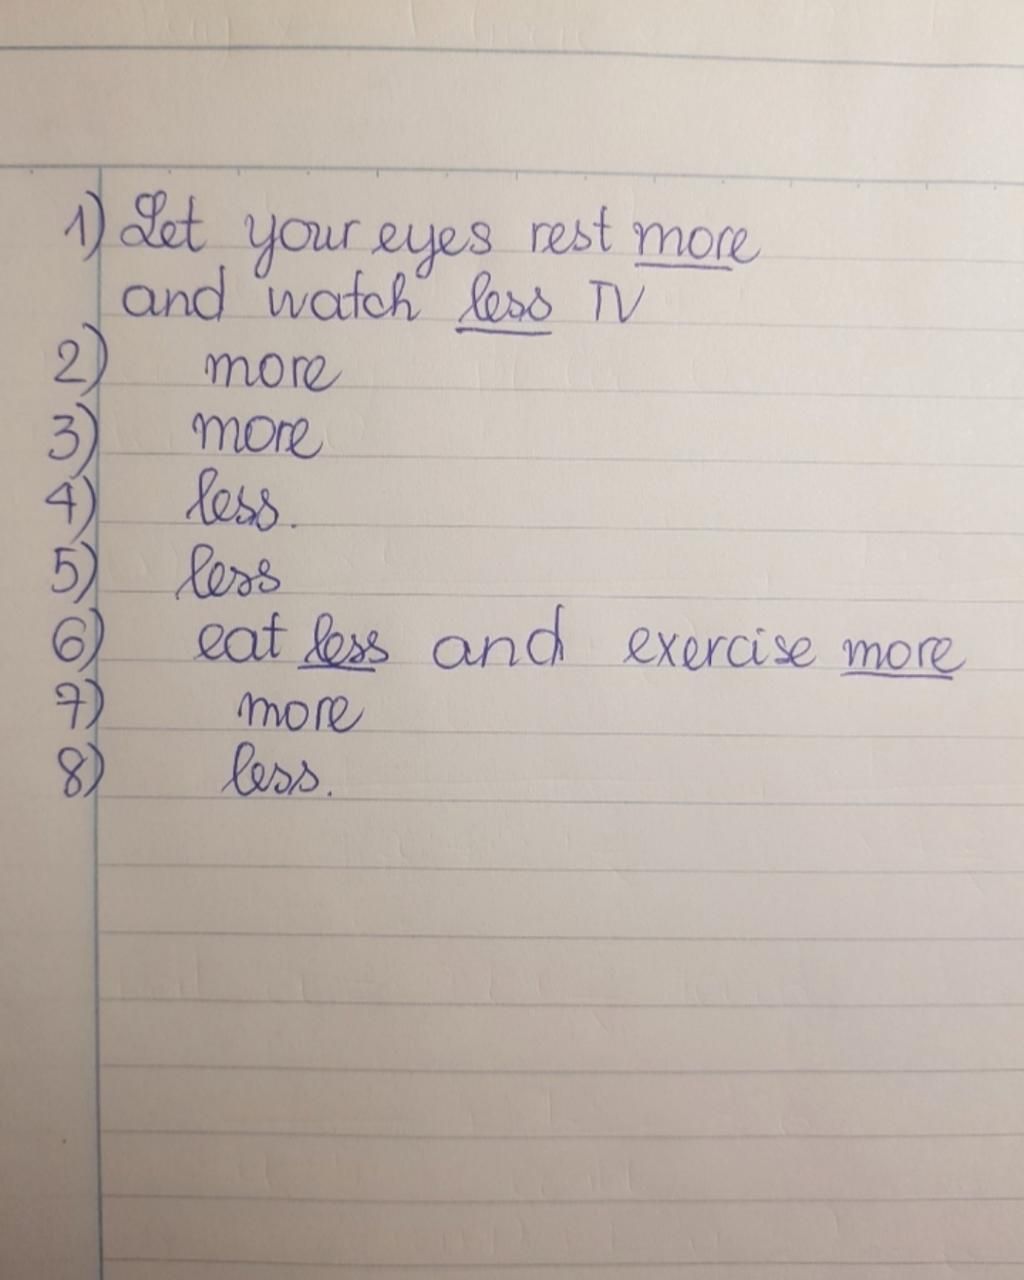 1) Let your eyes rest more
and watch less TV
2) more
3) more
4) less.
5) less
6) eat less and exercise more
7) more
8) less.